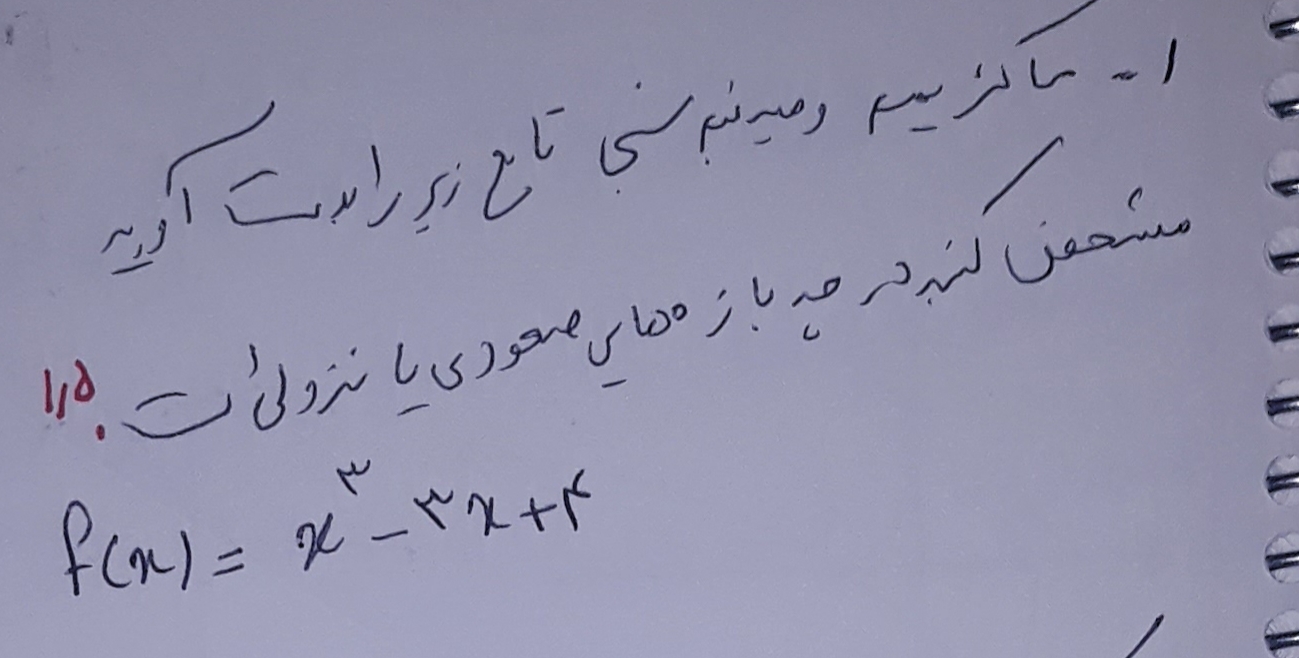 ۱- ماکزیمم و مینیمم نسبی تابع زیر را بدست آورید
مشخص کنید در چه بازه‌هایی صعودی یا نزولی است.
۱٫۵
f(x) = x^۳ - ۳x + ۴